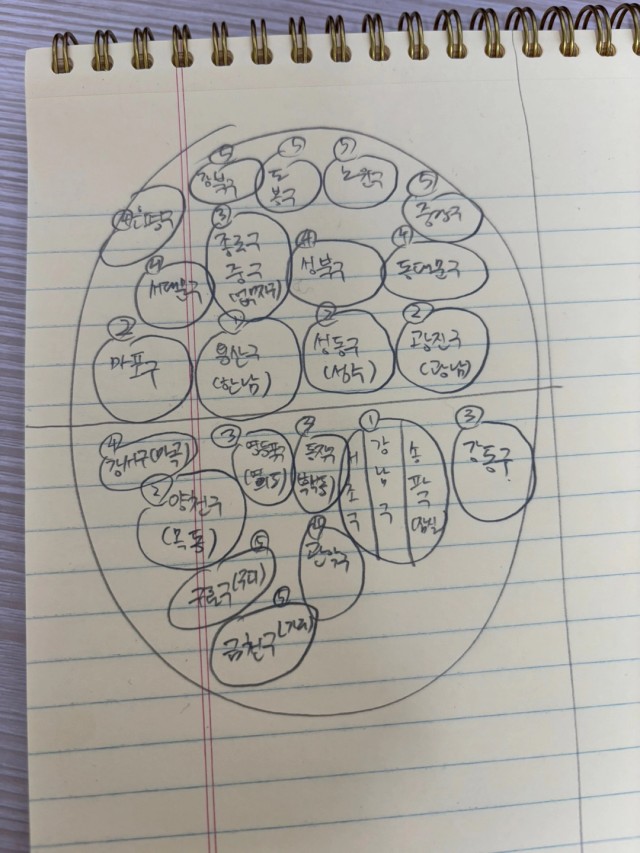 ⑤ ⑤ ⑤
강북구 도봉구 노원구
⑤
중랑구
④
은평구
③
종로구
중구
④
성북구
④
동대문구
④
서대문구
②
마포구
①
용산구
(한남)
②
성동구
(성수)
②
광진구
(광남)
④
강서구(마곡)
③
영등포
(여의도)
②
동작구
①
서초구
강남구
송파구
(잠실)
③
강동구
②
양천구
(목동)
⑤
구로구
④
관악구
⑤
금천구